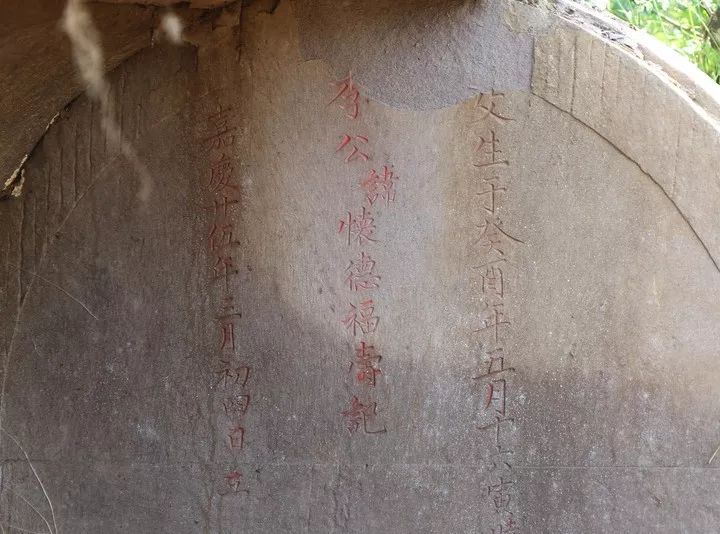 父生于癸酉年五月十六寅時
李公諱懷德福壽記
嘉慶廿伍年三月初四日立